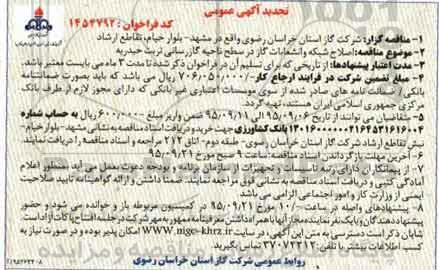 تجدید آگهی عمومی
کد فراخوان: ۱۴۵۴۷۹۲
۱- مناقصه گزار: شرکت گاز استان خراسان رضوی واقع در مشهد- بلوار خیام، تقاطع ارشاد
۲- موضوع مناقصه: اصلاح شبکه وانشعابات گاز در سطح ناحیه گازرسانی تربت حیدریه
۳- مدت اعتبار پیشنهادها: از تاریخی که برای تسلیم آن در فراخوان ذکر شده تا مدت ۳ ماه می بایست معتبر باشد.
۴- مبلغ تضمین شرکت در فرآیند ارجاع کار- /۷۰۶/۰۵۰/۰۰۰ ریال می باشد که باید بصورت ضمانتنامه
بانکی / ضمانت نامه های صادر شده از سوی موسسات اعتباری غیر بانکی که دارای مجوز لازم از طرف بانک
مرکزی جمهوری اسلامی ایران هستند، تهیه گردد.
۵- متقاضیان می توانند از تاریخ ۹۵/۰۹/۰۶ الی ۹۵/۰۹/۱۱ ضمن واریز مبلغ ۶۰۰/۰۰۰/- ریال به حساب شماره
بانک کشاورزی جهت خرید و دریافت اسناد مناقصه به نشانی مشهد-بلوار خیام-
نبش تقاطع ارشاد شرکت گاز استان خراسان رضوی- طبقه دوم- اتاق ۲۱۲ مراجعه و اسناد مناقصه را دریافت نمایند.
۶- آخرین مهلت بازگرداندن اسناد مناقصه: ساعت ۹ صبح مورخ ۹۵/۰۹/۲۱
۷- از پیمانکاران دارای رتبه تاسیسات و تجهیزات از سازمان برنامه و بودجه دعوت بعمل می آید بمنظور اعلام
آمادگی کتبی و دریافت اسناد مناقصه به نشانی فوق مراجعه نمایند. ضمنا داشتن و ارائه گواهینامه تایید صلاحیت
ایمنی از وزارت کار و امور اجتماعی الزامی می باشد.
۸- پیشنهادهای واصله در ساعت ۱۰/۰۰ مورخ ۹۵/۰۹/۲۱ در کمیسیون مربوطه باز و خوانده می شود و حضور
پیشنهاددهندگان و یا یک نفر نماینده مجاز آنها با همراه داشتن معرفینامه ممهور به مهر شرکت در جلسه افتتاح پاکات آزاد است.
شایان ذکر است دسترسی به متن این آگهی در سایت www.nigc-khrz.ir امکان پذیر بوده و در صورت نیاز به
کسب اطلاعات بیشتر با تلفن: ۳۷۰۷۲۲۱۲ تماس بگیرید.
روابط عمومی شرکت گاز استان خراسان رضوی